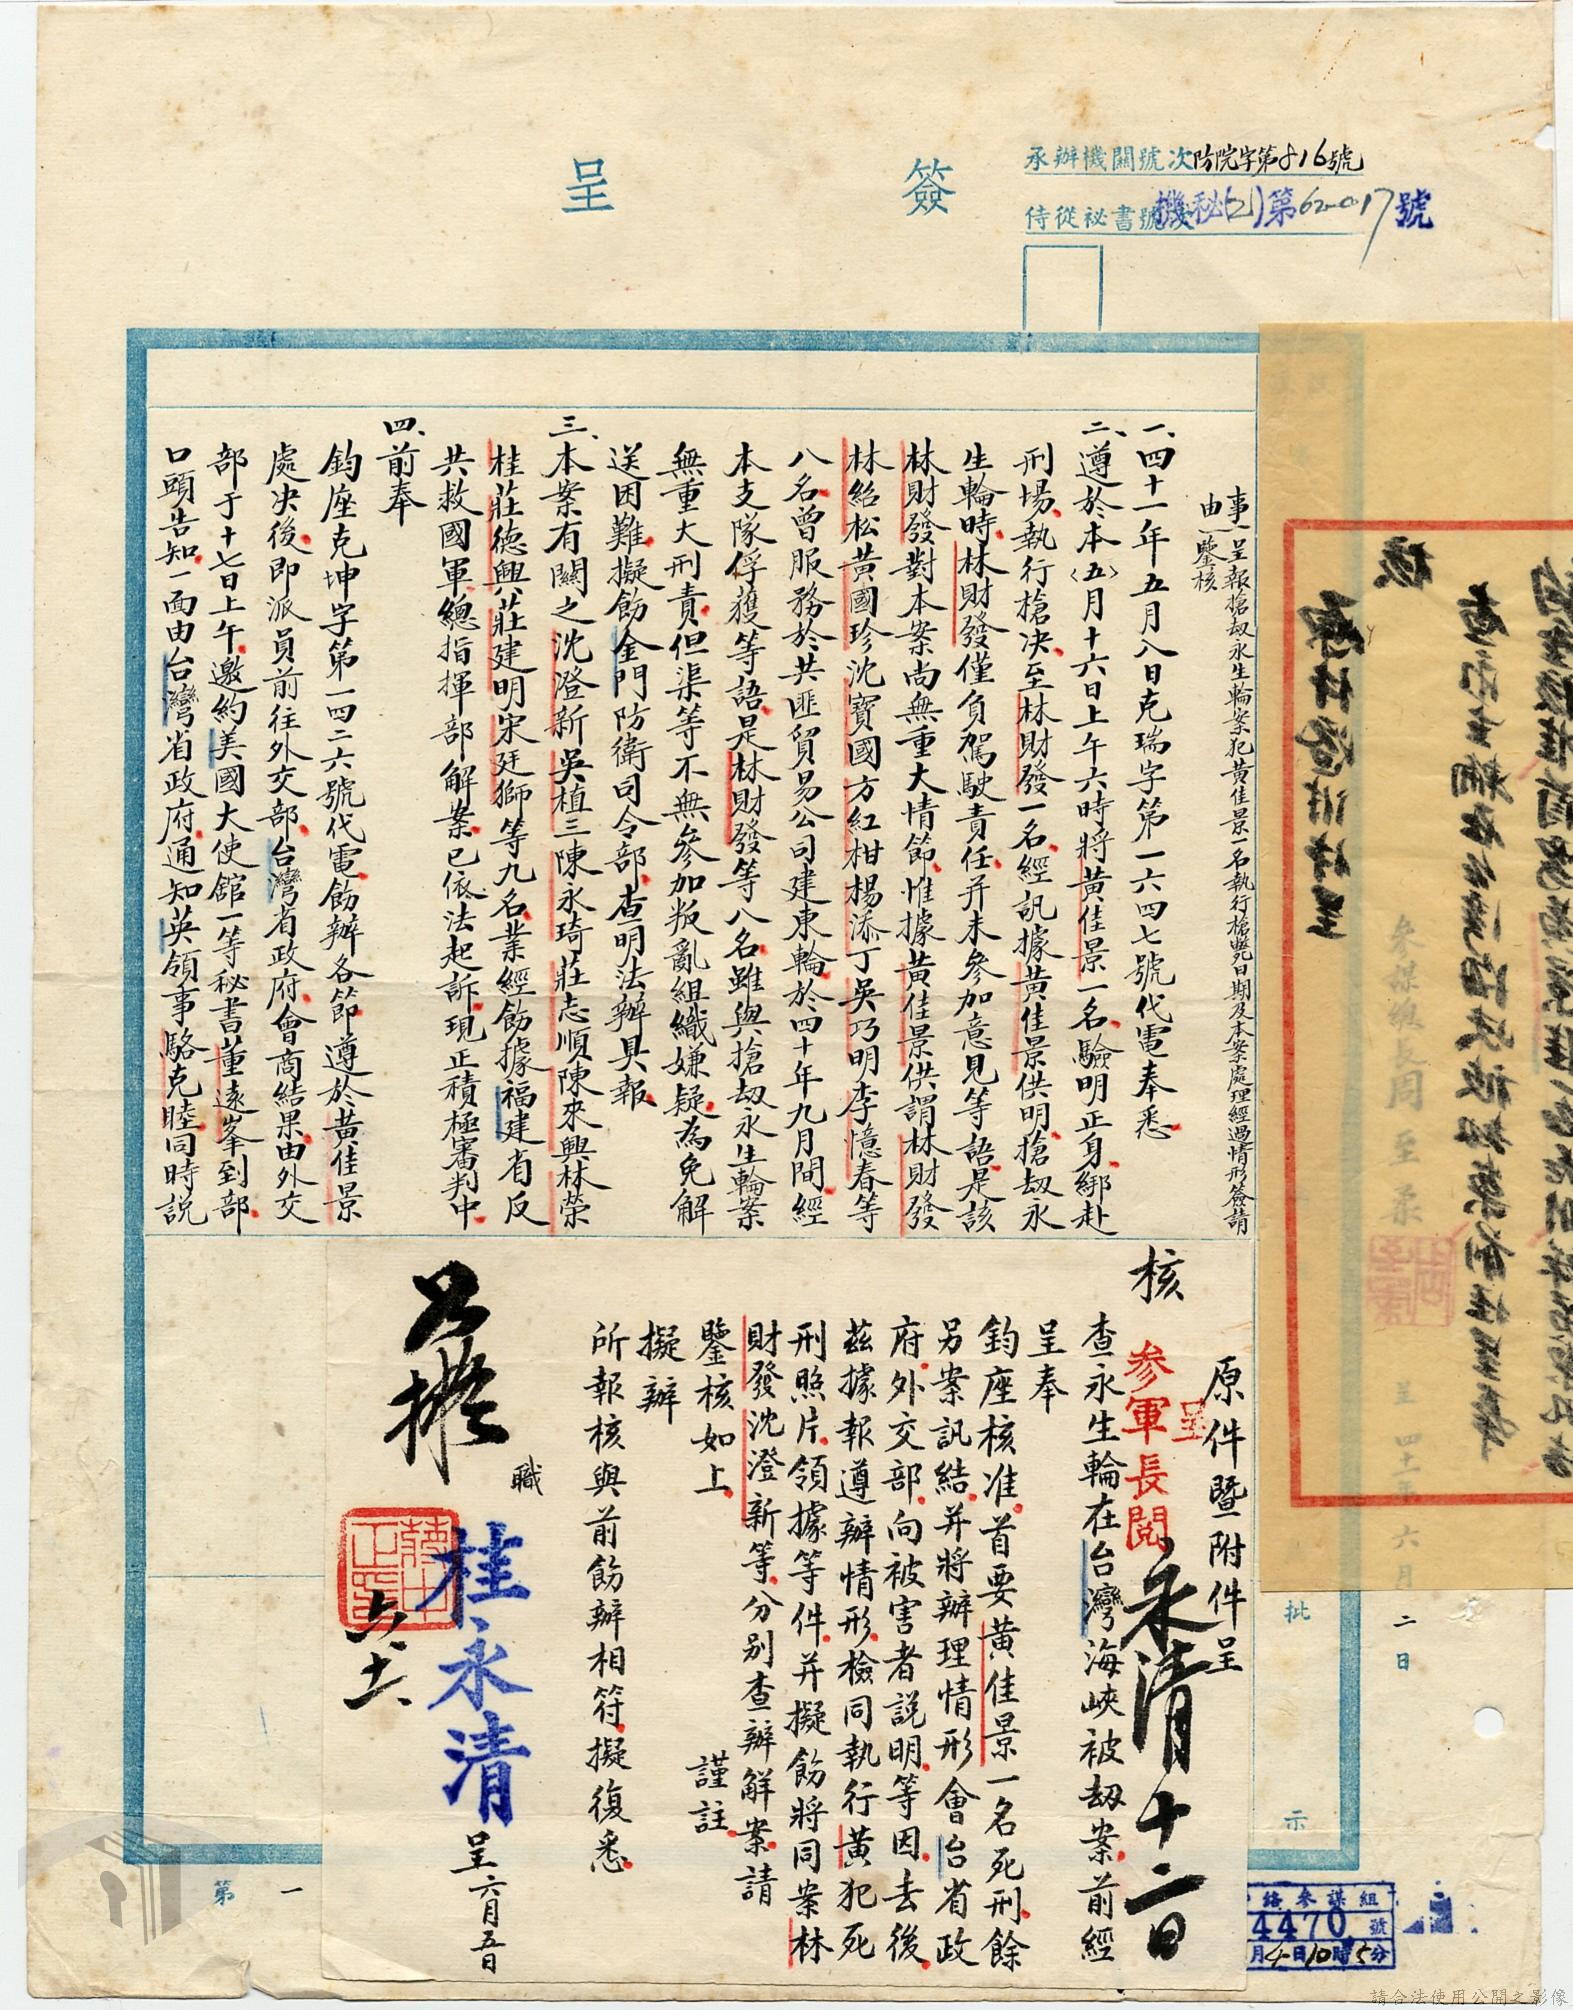 簽呈
承辦機關號次防院字第816號
侍從祕書號次機秘(乙)第62-0017號
事由：呈報搶刼永生輪案犯黃佳景一名執行槍斃日期及本案處理經過情形簽請
鑒核
一、四十一年五月八日克瑞字第一六四七號代電奉悉
二、遵於本〈五〉月十六日上午六時將黃佳景一名驗明正身綁赴
刑場執行槍決至林財發一名經訊據黃佳景供明搶刼永
生輪時林財發僅負駕駛責任并未參加意見等語是該
林財發對本案尚無重大情節惟據黃佳景供謂林財發
林紹松黃國珍沈寶國方紅柑楊添丁吳巧明李憶春等
八名曾服務於共匪貿易公司建東輪於四十年九月間經
本支隊俘獲等語是林財發等八名雖與搶刼永生輪案
無重大刑責但渠等不無參加叛亂組織嫌疑為免解
送困難擬飭金門防衛司令部查明法辦具報
三、本案有關之沈澄新吳植三陳永琦莊志順陳來興林榮
桂莊德興莊建明宋廷獅等九名業經飭據福建省反
共救國軍總指揮部解案已依法起訴現正積極審判中
四、前奉
鈞座克坤字第一四二六號代電飭辦各節遵於黃佳景
處決後即派員前往外交部台灣省政府會商結果由外交
部于十七日上午邀約美國大使館一等秘書董遠峯到部
口頭告知一面由台灣省政府通知英領事駱克睦同時說
參謀總長周至柔
呈四十一年六月二日
批示
原件暨附件呈
呈
參軍長閱
永清十二日
核
查永生輪在台灣海峽被刼案前經
呈奉
鈞座核准首要黃佳景一名死刑餘
另案訊結并將辦理情形會台省政
府外交部向被害者說明等因去後
茲據報遵辦情形檢同執行黃犯死
刑照片領據等件并擬飭將同案林
財發沈澄新等分別查辦解案請
鑒核如上謹註
擬辦
所報核與前飭辦相符擬復悉
職
桂永清
呈六月五日
蔣中正印
第一
絡參謀組
4470號
月4日10時5分
請合法使用公開之影像